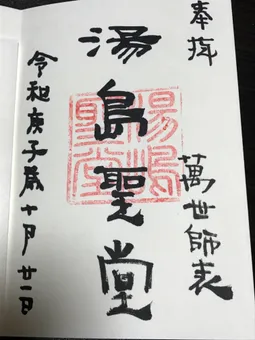 奉拝
萬世師表
湯島聖堂
湯嶋聖堂
令和庚子歳十月廿一日